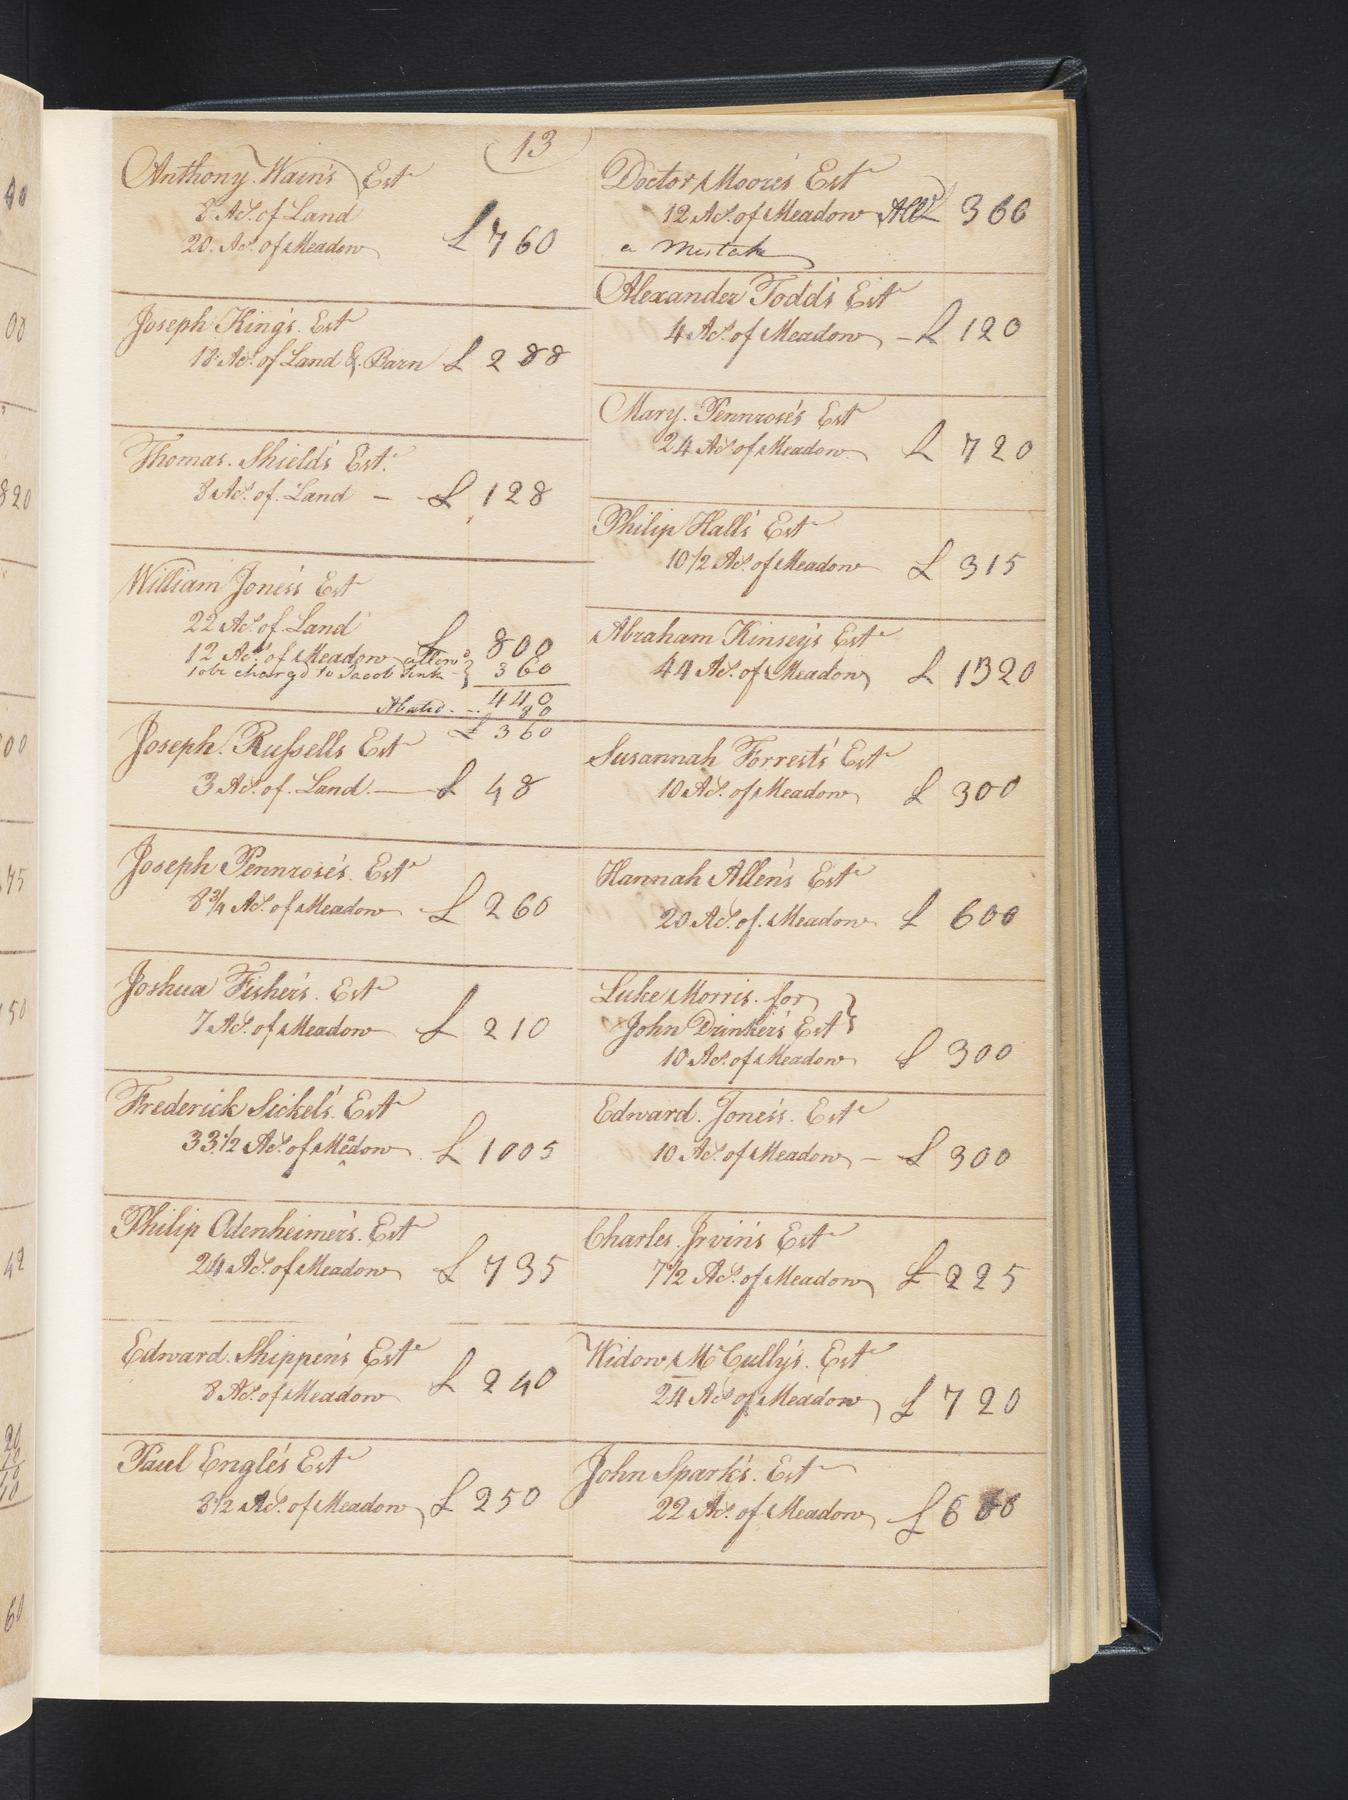 13
Anthony Wain's Est.
8 Acs. of Land
20 Acs. of Meadow £ 760
Joseph King's Est.
18 Acs. of Land & Barn £ 288
Thomas Shield's Est.
8 Acs. of Land — £ 128
William Jones's Est
22 Acs. of Land
12 Acs. of Meadow allow'd £ 800
to be charg'd to Jacob Fink } 360
440
Abated - - 80
£ 360
Joseph Russells Est
3 Acs. of Land — £ 48
Joseph Pennrose's Este
8 3/4 Acs. of Meadow £ 260
Joshua Fisher's Este
7 Acs. of Meadow £ 210
Frederick Sickel's Este
33 1/2 Acs. of Meadow £ 1005
Philip Odenheimer's Este
24 Acs. of Meadow £ 735
Edward Shippen's Este
8 Acs. of Meadow £ 240
Paul Engle's Este
8 1/2 Acs. of Meadow £ 250
Doctor Moore's Este
12 Acs. of Meadow Alld £ 360
a Mistake
Alexander Todd's Este
4 Acs. of Meadow — £ 120
Mary Pennrose's Este
24 Acs. of Meadow £ 720
Philip Hall's Este
10 1/2 Acs. of Meadow £ 315
Abraham Kinsey's Este
44 Acs. of Meadow £ 1320
Susannah Forrest's Este
10 Acs. of Meadow £ 300
Hannah Allen's Este
20 Acs. of Meadow £ 600
Luke Morris for }
John Drinker's Este }
10 Acs. of Meadow £ 300
Edward Jones's Este
10 Acs. of Meadow — £ 300
Charles Irvin's Este
7 1/2 Acs. of Meadow £ 225
Widow McCully's Este
24 Acs. of Meadow £ 720
John Spark's Este
22 Acs. of Meadow £ 660